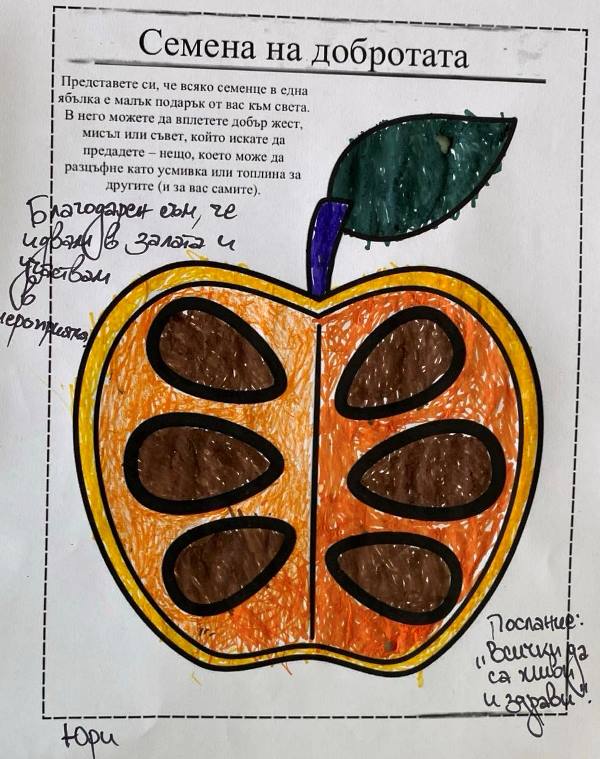 Семена на добротата
Представете си, че всяко семенце в една
ябълка е малък подарък от вас към света.
В него можете да вплетете добър жест,
мисъл или съвет, който искате да
предадете – нещо, което може да
разцъфне като усмивка или топлина за
другите (и за вас самите).
Благодарен съм, че
идвам в залата и
участвам
в
мероприятия
Послание:
„Всички да
са живи
и здрави".
Юри